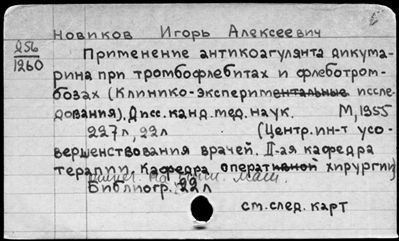 Новиков Игорь Алексеевич
256
1260
Применение антикоагулянта дикума-
рина при тромбофлебитах и флеботром-
бозах (Клинико-экспериментальные иссле-
дования). Дисс. канд. мед. наук. М, 1955
227л, 22л (Центр. ин-т усо-
вершенствования врачей. II-ая кафедра
терапии. Кафедра оперативной хирургии)
Библиогр. 22л
см. след. карт